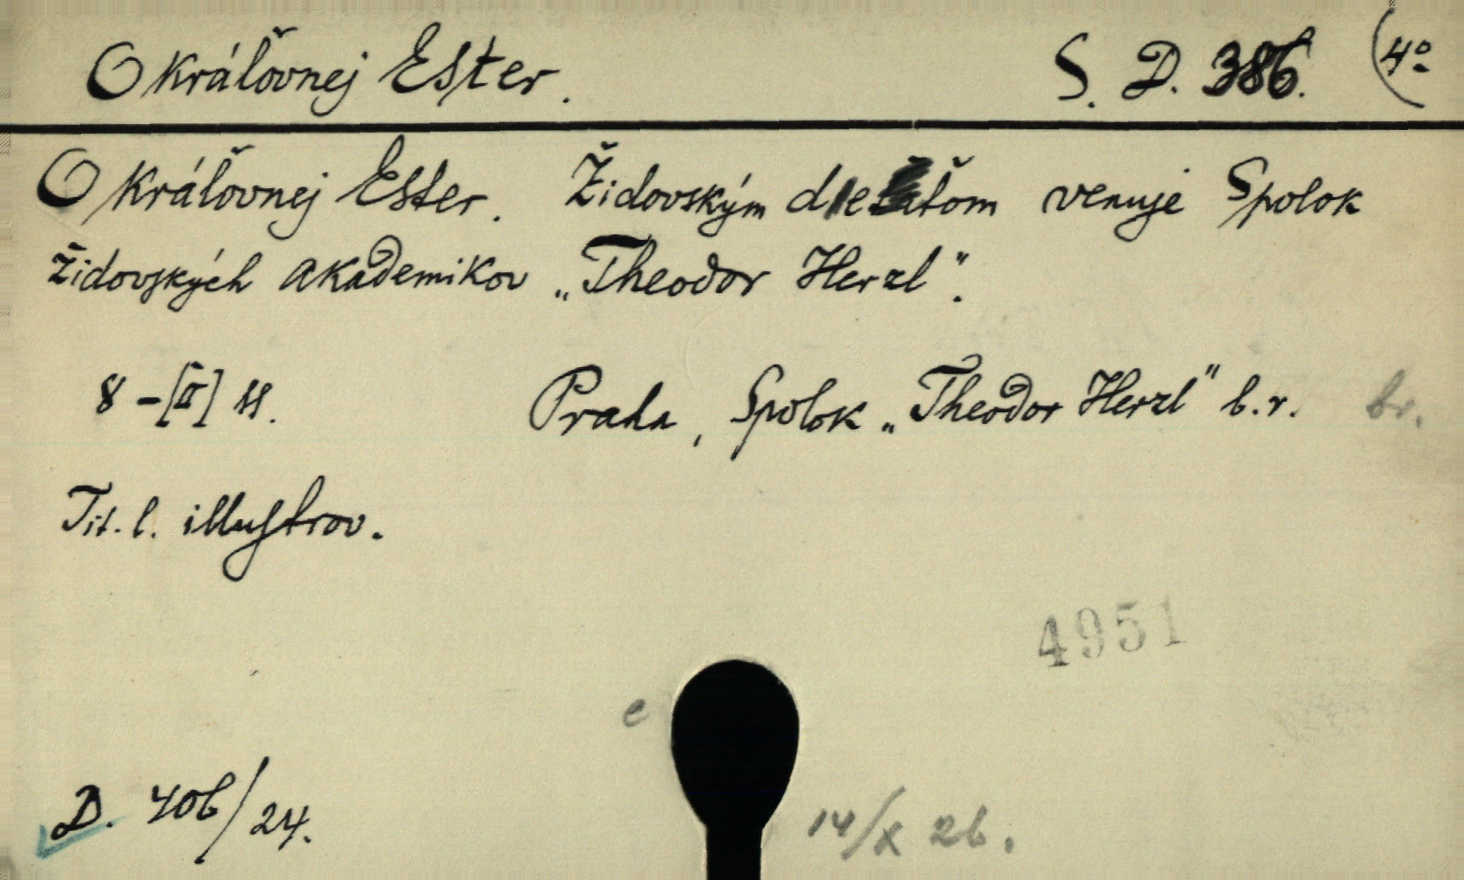 O kráľovnej Ester. S. D. 386. (4°
O kráľovnej Ester. Židovským dieťaťom venuje Spolok
židovských akademikov „Theodor Herzl".
8 - [II] ss. Praha, Spolok „Theodor Herzl" b.r. br.
Tit. l. illustrov.
4951
e
D. 406/24.
14/X 26.